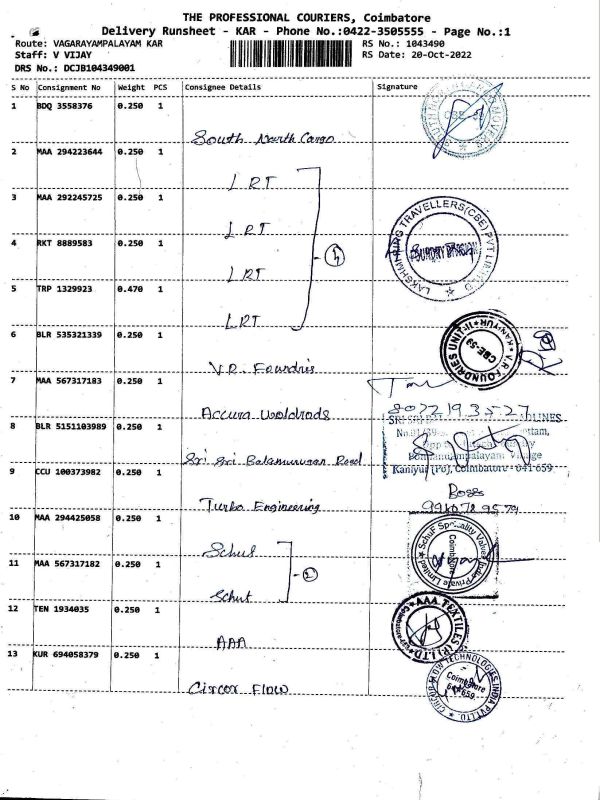 THE PROFESSIONAL COURIERS, Coimbatore
Delivery Runsheet - KAR - Phone No.:0422-3505555 - Page No.:1
Route: VAGARAYAMPALAYAM KAR
RS No.: 1043490
Staff: V VIJAY
RS Date: 20-Oct-2022
DRS No.: DCJB104349001
S No Consignment No Weight PCS Consignee Details Signature
1 BDQ 3558376 0.250 1
South North Cargo
2 MAA 294223644 0.250 1
LRT
3 MAA 292245725 0.250 1
LRT
4 RKT 8889583 0.250 1
LRT
5 TRP 1329923 0.470 1
LRT
LAKSHMI RING TRAVELLERS(CBE) PVT LIMITED
4
6 BLR 535321339 0.250 1
V.R. Foundris
V.R. FOUNDRIES UNIT-II KANIYUR
CBE-59
7 MAA 567317183 0.250 1
Accura Weldrods
8072193527
8 BLR 5151103989 0.250 1
Sri Sri Balamurugan Road
Kaniyur (Po), Coimbatore - 641 659
9 CCU 100373982 0.250 1
Turbo Engineering
Boss
10 MAA 294425058 0.250 1
Schuf
11 MAA 567317182 0.250 1
Schuf
2
SchuF Speciality Valves India Private Limited
Coimbatore
12 TEN 1934035 0.250 1
AAA
AAA TEXTILES (P) LTD
Coimbatore
13 KUR 694058379 0.250 1
Circor Flow
CIRCOR FLOW TECHNOLOGIES INDIA PVT LTD
Coimbatore
641 659